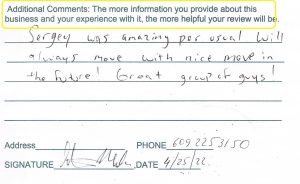 Additional Comments: The more information you provide about this
business and your experience with it, the more helpful your review will be.
Sergey was amazing per usual will
always move with nice move in
the future! Great group of guys!
Address
PHONE 6092253150
SIGNATURE
DATE 4/25/22